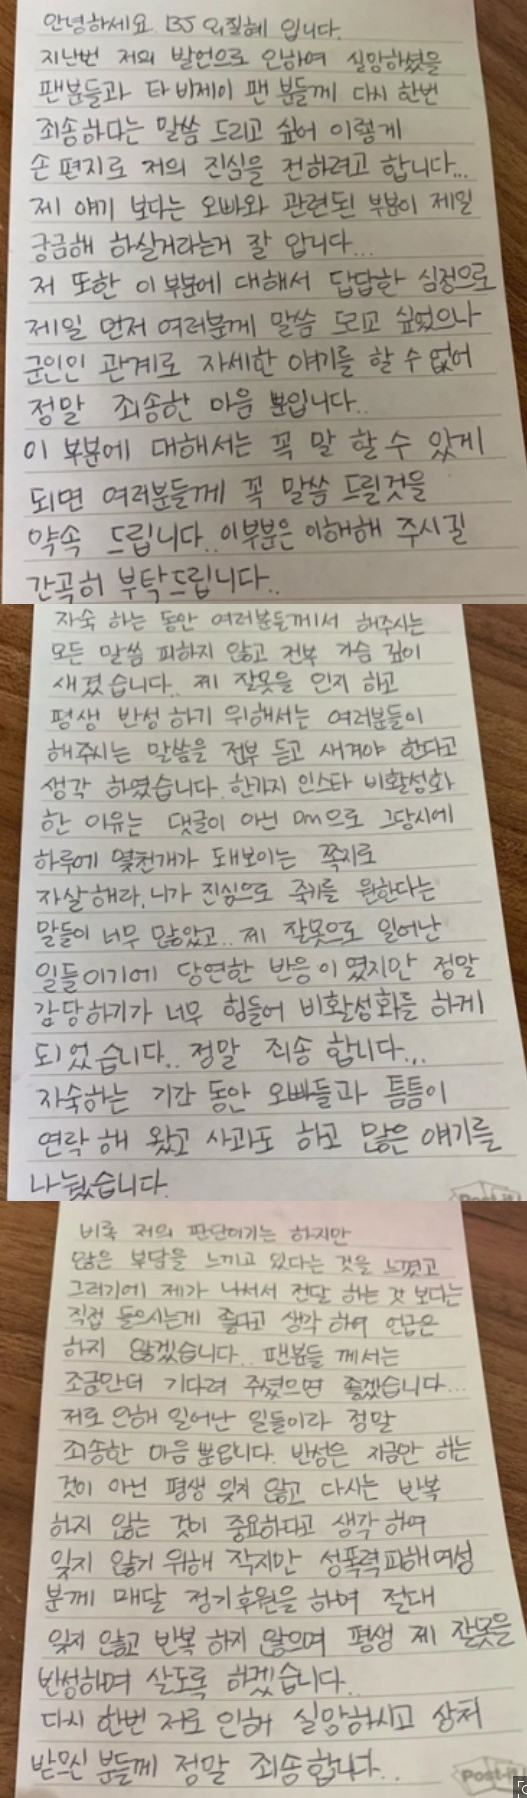 안녕하세요. BJ 외질혜 입니다.
지난번 저의 발언으로 인하여 실망하셨을
팬분들과 타 비제이 팬 분들께 다시 한번
죄송하다는 말씀 드리고 싶어 이렇게
손 편지로 저의 진심을 전하려고 합니다...
제 얘기 보다는 오빠와 관련된 부분이 제일
궁금해 하실거라는거 잘 압니다...
저 또한 이 부분에 대해서 답답한 심정으로
제일 먼저 여러분께 말씀 드리고 싶었으나
군인인 관계로 자세한 얘기를 할 수 없어
정말 죄송한 마음 뿐입니다..
이 부분에 대해서는 꼭 말 할 수 있게
되면 여러분들께 꼭 말씀 드릴것을
약속 드립니다.. 이부분은 이해해 주시길
간곡히 부탁드립니다..
자숙 하는 동안 여러분들께서 해주시는
모든 말씀 피하지 않고 전부 가슴 깊이
새겼습니다.. 제 잘못을 인지 하고
평생 반성 하기 위해서는 여러분들이
해주시는 말씀을 전부 듣고 새겨야 한다고
생각 하였습니다. 한가지 인스타 비활성화
한 이유는 댓글이 아닌 Dm으로 그당시에
하루에 몇천개가 돼보이는 쪽지로
자살해라, 니가 진심으로 죽기를 원한다는
말들이 너무 많았고.. 제 잘못으로 일어난
일들이기에 당연한 반응이였지만 정말
감당하기가 너무 힘들어 비활성화를 하게
되었습니다.. 정말 죄송 합니다...
자숙하는 기간 동안 오빠들과 틈틈이
연락 해 왔고 사과도 하고 많은 얘기를
나눴습니다.
비록 저의 판단이기는 하지만
많은 부담을 느끼고 있다는 것을 느꼈고
그러기에 제가 나서서 전달 하는 것 보다는
직접 들으시는게 좋다고 생각 하여 언급은
하지 않겠습니다.. 팬분들 께서는
조금만더 기다려 주셨으면 좋겠습니다...
저로 인해 일어난 일들이라 정말
죄송한 마음 뿐입니다. 반성은 지금만 하는
것이 아닌 평생 잊지 않고 다시는 반복
하지 않는 것이 중요하다고 생각 하여
잊지 않기 위해 작지만 성폭력피해여성
분께 매달 정기후원을 하여 절대
잊지 않고 반복 하지 않으며 평생 제 잘못을
반성하며 살도록 하겠습니다..
다시 한번 저로 인해 실망하시고 상처
받으신 분들께 정말 죄송합니다..
Post-it